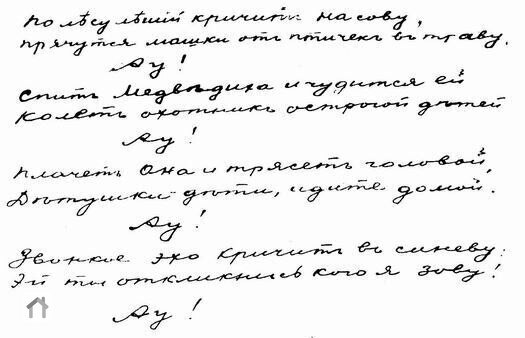 По лѣсу лѣшій кричитъ на сову,
Прячутся мошки отъ птичекъ въ траву.
Ау!
Спитъ медвѣдиха и чудится ей
Колетъ охотникъ острогой дѣтей
Ау!
Плачетъ она и трясетъ головой
Дѣтушки дѣти, идите домой.
Ау!
Звонкое эхо кричитъ въ синеву:
Эй ты откликнись кого я зову!
Ау!